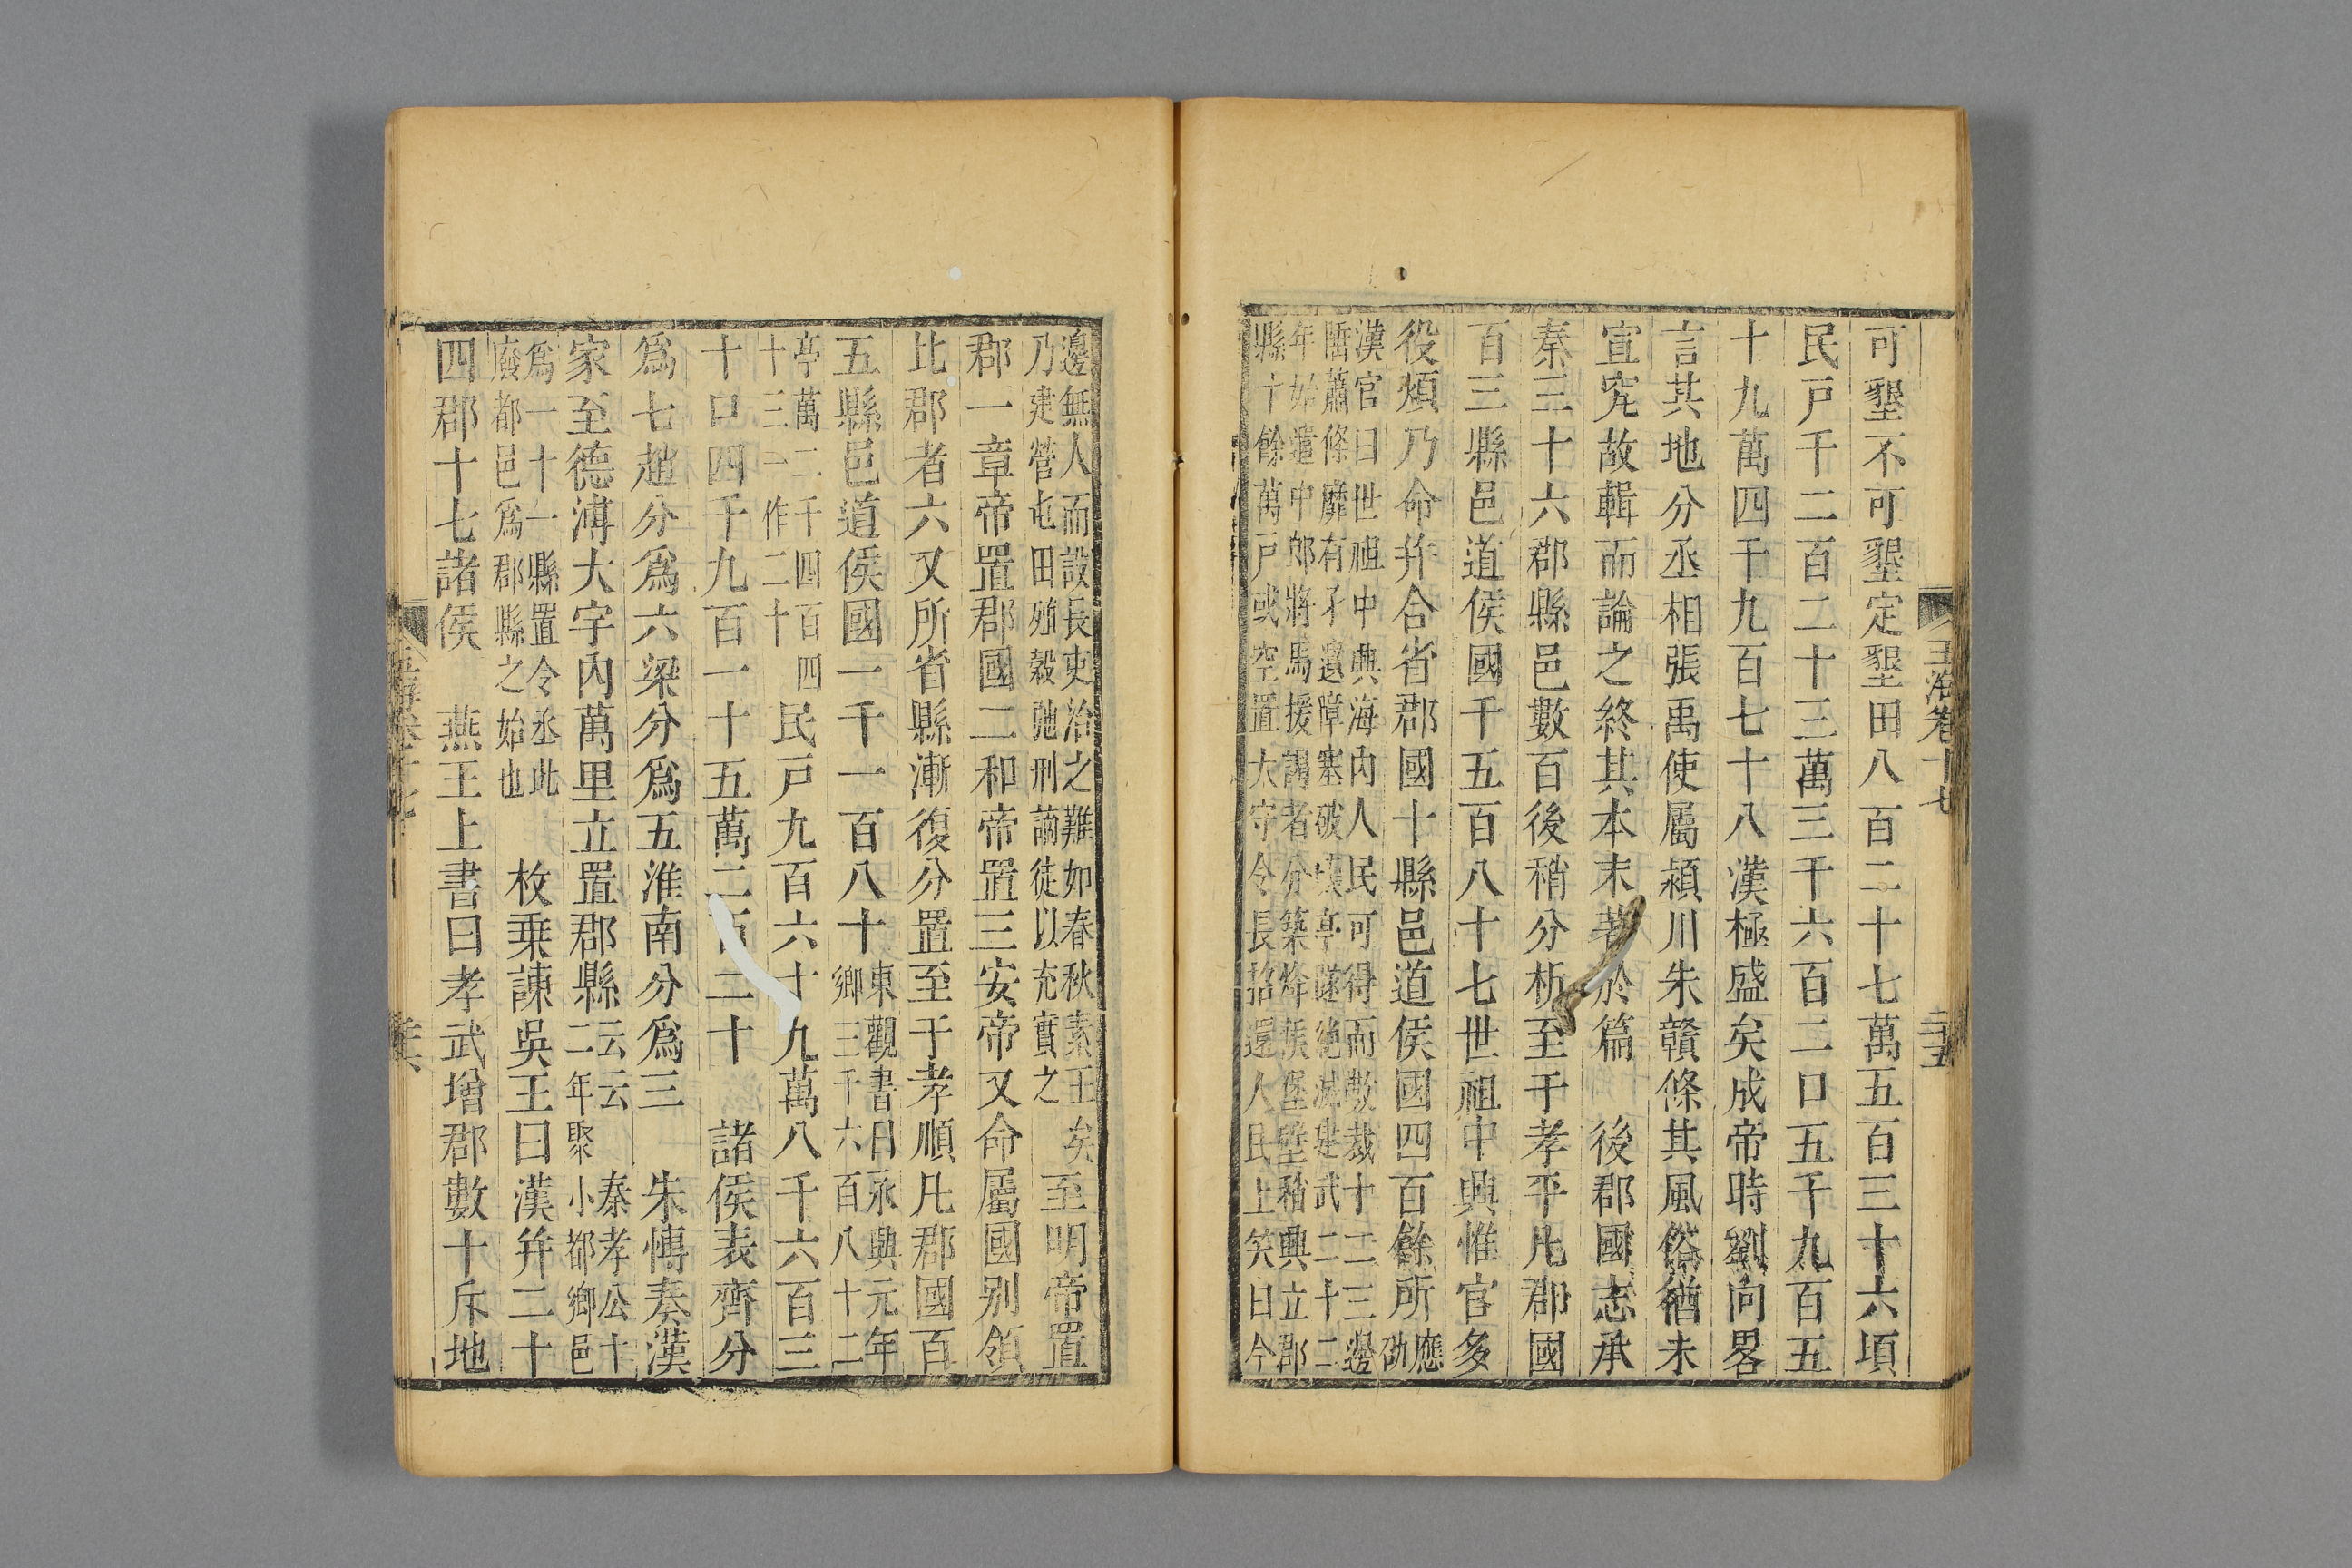 玉海卷十七
三十五
可墾不可墾定墾田八百二十七萬五百三十六頃
民戸千二百二十三萬三千六百二口五千九百五
十九萬四千九百七十八漢極盛矣成帝時劉向畧
言其地分丞相張禹使屬潁川朱贛條其風俗猶未
宣究故輯而論之終其本末著於篇 後郡國志承
秦三十六郡縣邑數百後稍分析至于孝平凡郡國
百三縣邑道侯國千五百八十七世祖中興惟官多
役煩乃命并合省郡國十縣邑道侯國四百餘所應
劭
漢官曰世祖中興海内人民可得而數裁十二三邊
陲蕭條靡有孑遺障塞破壞亭隧絶滅建武二十二
年始遣中郎將馬援謁者分築烽候堡壁稍興立郡
縣十餘萬戸或空置太守令長招還人民上笑曰今
邊無人而設長吏治之難如春秋素王矣
乃建營屯田殖穀弛刑謫徒以充實之
至明帝置
郡一章帝置郡國二和帝置三安帝又命屬國别領
比郡者六又所省縣漸復分置至于孝順凡郡國百
五縣邑道侯國一千一百八十
東觀書曰永興元年
鄉三千六百八十二
亭萬二千四百四
十三一作二十
民戸九百六十九萬八千六百三
十口四千九百一十五萬二百二十 諸侯表齊分
爲七趙分爲六梁分爲五淮南分爲三 朱博奏漢
家至德溥大宇内萬里立置郡縣
云云 秦孝公十
二年聚小都鄉邑
爲一十一縣置令丞此
廢都邑爲郡縣之始也
枚乗諫吳王曰漢并二十
四郡十七諸侯 燕王上書曰孝武增郡數十斥地